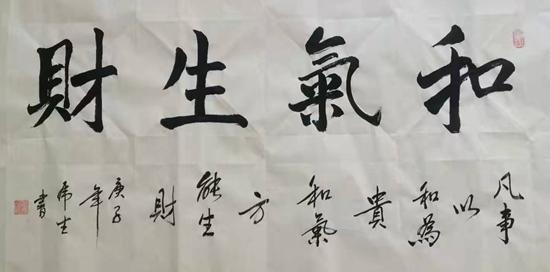 和氣生財
凡事以和為貴和氣方能生財
庚子年
虎生書